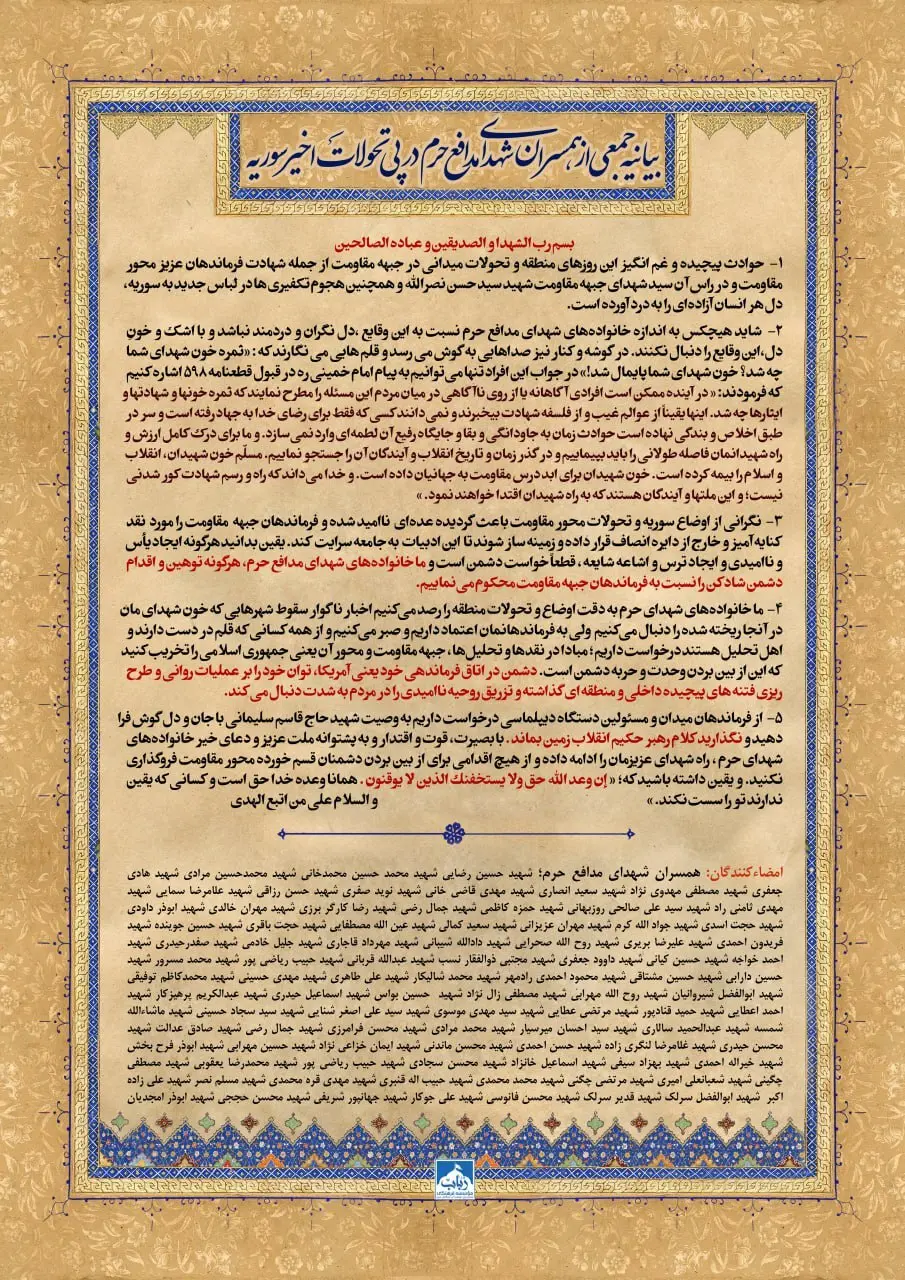 بیانیه جمعی از همسران شهدای مدافع حرم در پی تحولات اخیر سوریه
بسم رب الشهدا و الصدیقین و عباده الصالحین
۱- حوادث پیچیده و غم انگیز این روزهای منطقه و تحولات میدانی در جبهه مقاومت از جمله شهادت فرماندهان عزیز محور
مقاومت و در راس آن سید شهدای جبهه مقاومت شهید سید حسن نصرالله و همچنین هجوم تکفیری ها در لباس جدید به سوریه،
دل هر انسان آزاده‌ای را به درد آورده است.
۲- شاید هیچکس به اندازه خانواده‌های شهدای مدافع حرم نسبت به این وقایع ،دل نگران و دردمند نباشد و با اشک و خونِ
دل،این وقایع را دنبال نکنند. در گوشه و کنار نیز صداهایی به گوش می رسد و قلم هایی می نگارند که : «ثمره خون شهدای شما
چه شد؟ خون شهدای شما پایمال شد!» در جواب این افراد تنها می‌توانیم به پیام امام خمینی ره در قبول قطعنامه ۵۹۸ اشاره کنیم
که فرمودند: « در آینده ممکن است افرادی آگاهانه یا از روی ناآگاهی در میان مردم این مسئله را مطرح نمایند که ثمره خونها و شهادتها و
ایثارها چه شد. اینها یقیناً از عوالم غیب و از فلسفه شهادت بیخبرند و نمی دانند کسی که فقط برای رضای خدا به جهاد رفته است و سر در
طبق اخلاص و بندگی نهاده است حوادث زمان به جاودانگی و بقا و جایگاه رفیع آن لطمه ای وارد نمی سازد. و ما برای درک کامل ارزش و
راه شهیدانمان فاصله طولانی را باید بپیماییم و در گذر زمان و تاریخ انقلاب و آیندگان آن را جستجو نماییم. مسلّم خون شهیدان، انقلاب
و اسلام را بیمه کرده است. خون شهیدان برای ابد درس مقاومت به جهانیان داده است. و خدا می‌داند که راه و رسم شهادت کور شدنی
نیست؛ و این ملتها و آیندگان هستند که به راه شهیدان اقتدا خواهند نمود. »
۳- نگرانی از اوضاع سوریه و تحولات محور مقاومت باعث گردیده عده‌ای ناامید شده و فرماندهان جبهه مقاومت را مورد نقد
کنایه‌آمیز و خارج از دایره انصاف قرار داده و زمینه ساز شوند تا این ادبیات به جامعه سرایت کند. یقین بدانید هرگونه ایجاد یأس
و ناامیدی و ایجاد ترس و اشاعه شایعه ، قطعاً خواست دشمن است و ما خانواده‌های شهدای مدافع حرم، هرگونه توهین و اقدام
دشمن شادکن را نسبت به فرماندهان جبهه مقاومت محکوم می نماییم.
۴- ما خانواده‌های شهدای حرم به دقت اوضاع و تحولات منطقه را رصد می‌کنیم اخبار ناگوار سقوط شهرهایی که خون شهدای مان
در آنجا ریخته شده را دنبال می‌کنیم ولی به فرماندهانمان اعتماد داریم و صبر می‌کنیم و از همه کسانی که قلم در دست دارند و
اهل تحلیل هستند درخواست داریم؛ مبادا در نقدها و تحلیل‌ها، جبهه مقاومت و محور آن یعنی جمهوری اسلامی را تخریب کنید
که این از بین بردن وحدت و حربه دشمن است. دشمن در اتاق فرماندهی خود یعنی آمریکا، توان خود را بر عملیات روانی و طرح
ریزی فتنه های پیچیده داخلی و منطقه ای گذاشته و تزریق روحیه ناامیدی را در مردم به شدت دنبال می‌کند.
۵- از فرماندهان میدان و مسئولین دستگاه دیپلماسی درخواست داریم به وصیت شهید حاج قاسم سلیمانی با جان و دل گوش فرا
دهید و نگذارید کلام رهبر حکیم انقلاب زمین بماند . با بصیرت، قوت و اقتدار و به پشتوانه ملت عزیز و دعای خیر خانواده‌های
شهدای حرم ، راه شهدای عزیزمان را ادامه داده و از هیچ اقدامی برای از بین بردن دشمنان قسم خورده محور مقاومت فروگذاری
نکنید. و یقین داشته باشید که؛ « إن وعد الله حق ولا يستخفنك الذين لا يوقنون . همانا وعده خدا حق است و کسانی که یقین
ندارند تو را سست نکند. » و السلام علی من اتبع الهدی
امضاء‌کنندگان: همسران شهدای مدافع حرم؛ شهید حسین رضایی شهید محمد حسین محمدخانی شهید محمدحسین مرادی شهید هادی
جعفری شهید مصطفی مهدوی نژاد شهید سعید انصاری شهید مهدی قاضی خانی شهید نوید صفری شهید حسن رزاقی شهید غلامرضا سمایی شهید
مهدی ثامنی راد شهید سید علی صالحی روزبهانی شهید حمزه کاظمی شهید جمال رضی شهید رضا کارگر برزی شهید مهران خالدی شهید ابوذر داودی
شهید حجت اسدی شهید جواد الله کرم شهید مهران عزیزانی شهید سعید کمالی شهید عین الله مصطفایی شهید حجت باقری شهید حسین جوینده شهید
فریدون احمدی شهید علیرضا بریری شهید روح الله صحرایی شهید دادالله شیبانی شهید مهرداد قاجاری شهید جلیل خادمی شهید صفدرحیدری شهید
احمد خواجه شهید حسین کیانی شهید داوود جعفری شهید مجتبی ذوالفقار نسب شهید عبدالله قربانی شهید حبیب ریاضی پور شهید محمد مسرور شهید
حسین دارابی شهید حسین مشتاقی شهید محمود احمدی رادمهر شهید محمد شالیکار شهید علی طاهری شهید مهدی حسینی شهید محمدکاظم توفیقی
شهید ابوالفضل شیروانیان شهید روح الله مهرابی شهید مصطفی زال نژاد شهید حسین بواس شهید اسماعیل حیدری شهید عبدالکریم پرهیزکار شهید
احمد اعطایی شهید حمید قنادپور شهید مرتضی عطایی شهید سید مهدی موسوی شهید سید علی اصغر شنایی شهید سید سجاد حسینی شهید ماشاءالله
شمسه شهید عبدالحمید سالاری شهید سید احسان میرسیار شهید محمد مرادی شهید محسن فرامرزی شهید جمال رضی شهید صادق عدالت شهید
محسن حیدری شهید غلامرضا لنگری زاده شهید حسن احمدی شهید محسن ماندنی شهید ایمان خزاعی نژاد شهید حسین مهرابی شهید ابوذر فرح بخش
شهید خیراله احمدی شهید بهزاد سیفی شهید اسماعیل خانزاد شهید محسن سجادی شهید حبیب ریاضی پور شهید محمدرضا یعقوبی شهید مصطفی
چگینی شهید شعبانعلی امیری شهید مرتضی چگنی شهید محمد محمدی شهید حبیب اله قنبری شهید مهدی قره محمدی شهید مسلم نصر شهید علی زاده
اکبر شهید ابوالفضل سرلک شهید قدیر سرلک شهید محسن فانوسی شهید علی جوکار شهید جهانپور شریفی شهید محسن حججی شهید ابوذر امجدیان
رباب
موسسه فرهنگی